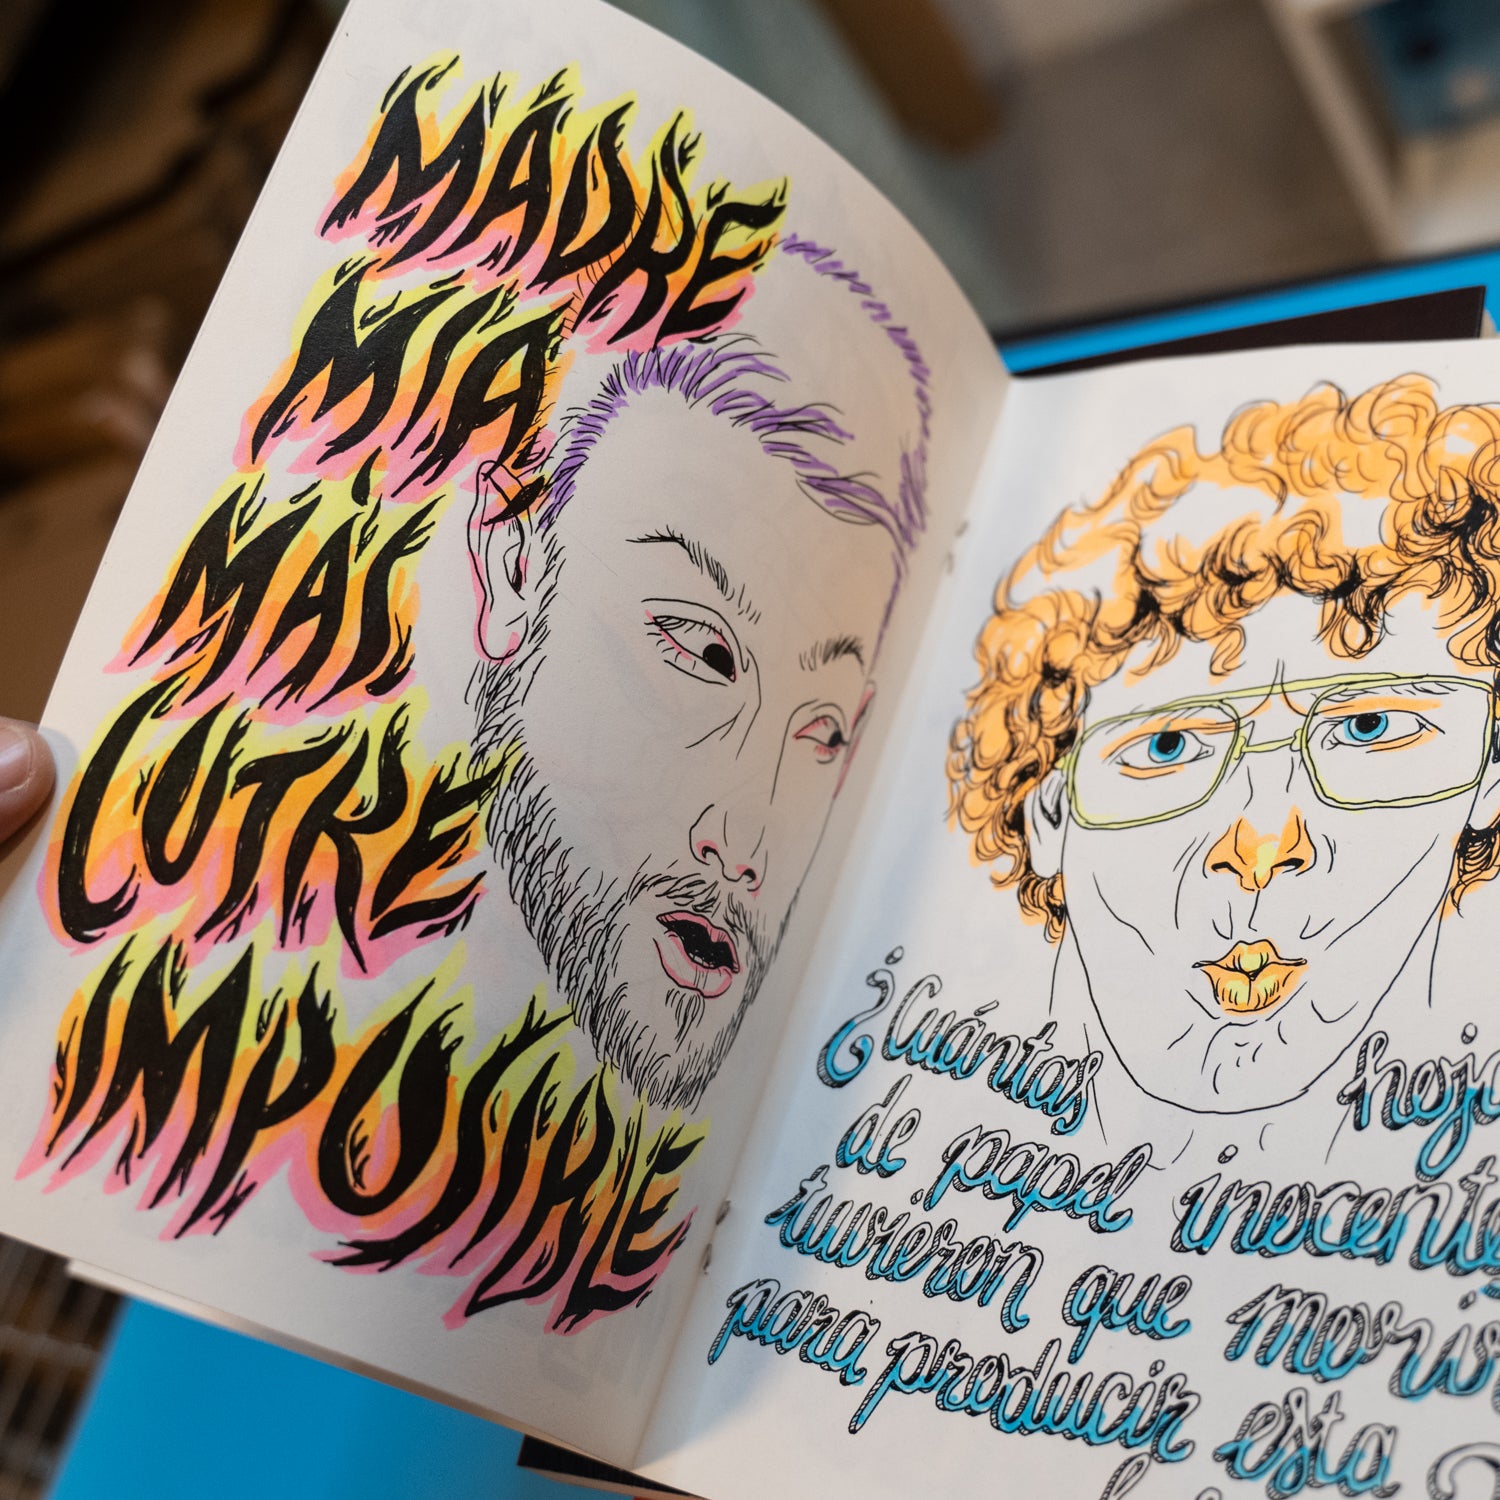 MADRE
MIA
MÁS
CUTRE
IMPOSIBLE
¿Cuántas
de papel
tuvieron que
para producir esta